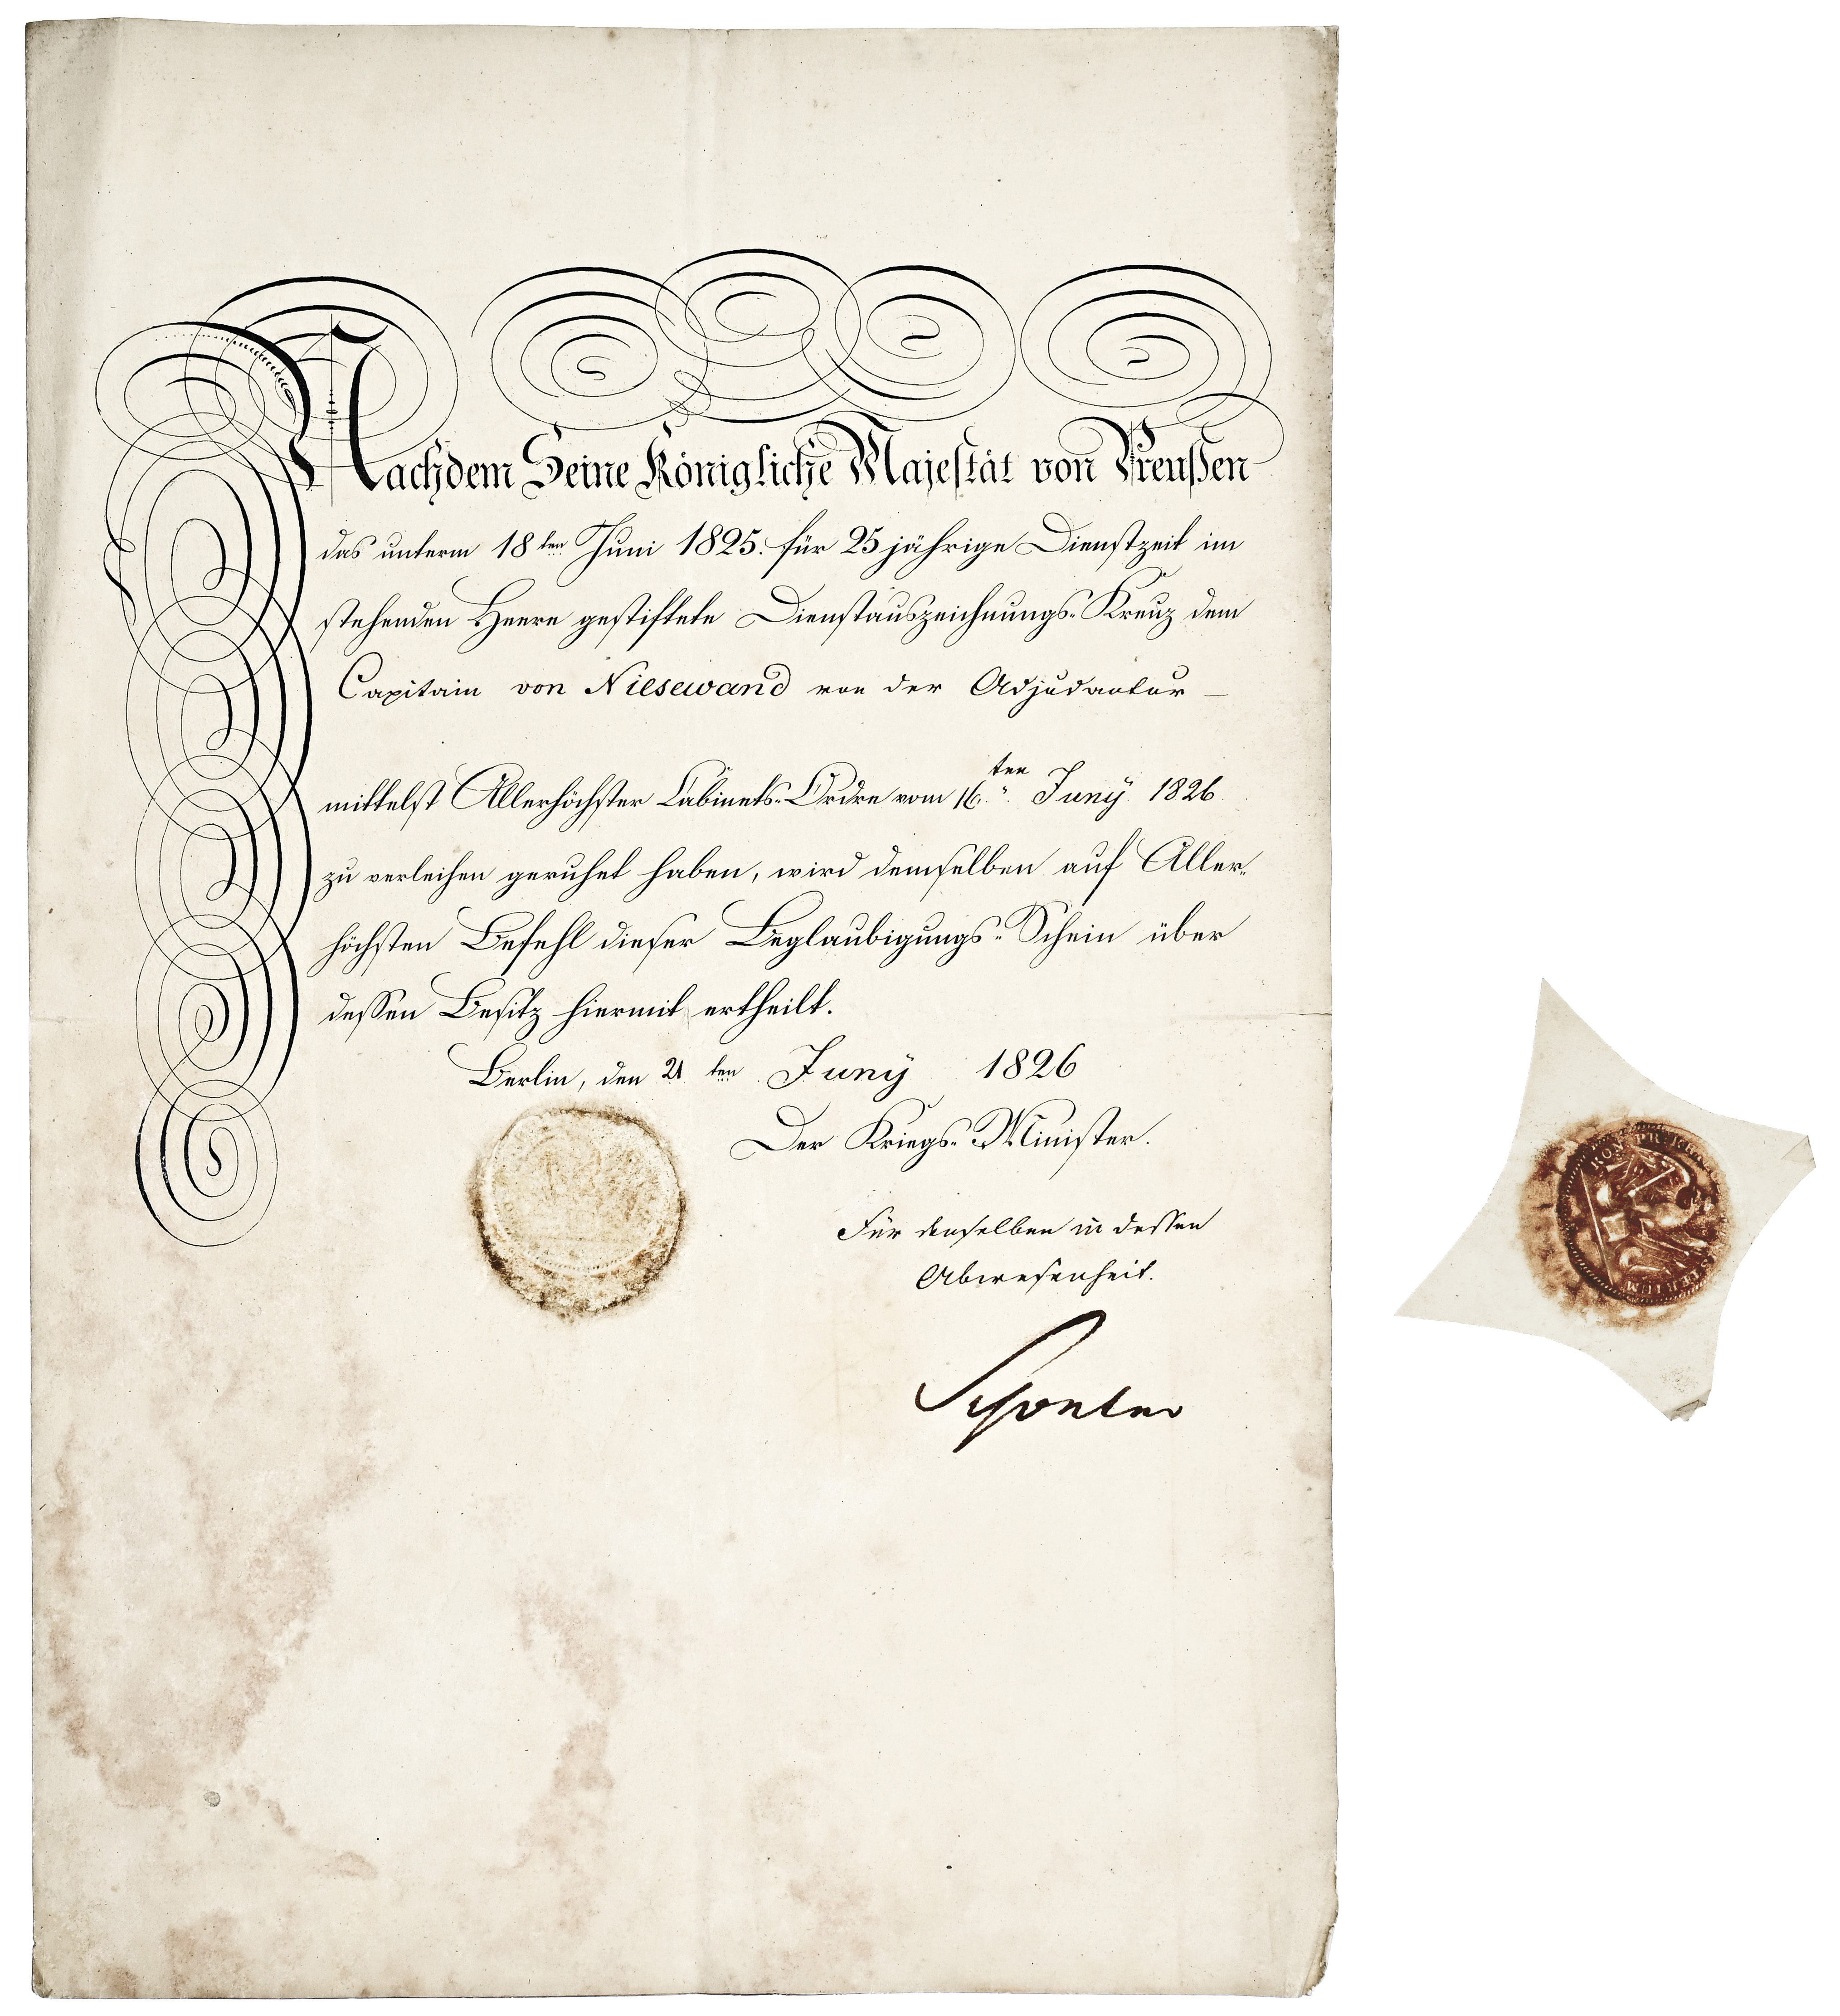 Nachdem Seine Königliche Majestät von Preußen
das unterm 18ten Juni 1825. für 25 jährige Dienstzeit im
stehenden Heere gestiftete Dienstauszeichnungs-Kreuz dem
Capitain von Niesewand von der Adjudantur
mittelst Allerhöchster Cabinets-Ordre vom 16ten Juny 1826
zu verleihen geruhet haben, wird demselben auf Aller-
höchsten Befehl dieser Beglaubigungs-Schein über
dessen Besitz hiermit ertheilt.
Berlin, den 21ten Juny 1826
Der Kriegs-Minister.
Für denselben in dessen
Abwesenheit.